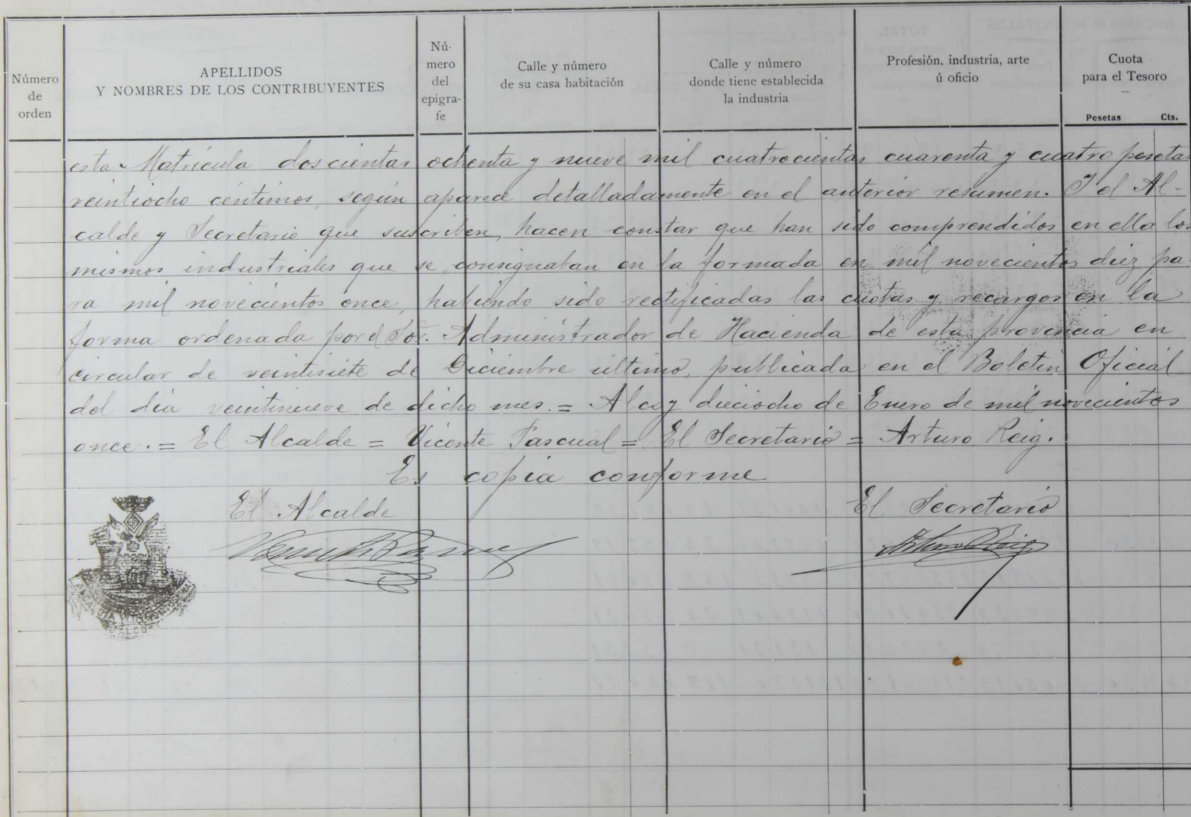 Número de orden
APELLIDOS Y NOMBRES DE LOS CONTRIBUYENTES
Nú-mero del epígra-fe
Calle y número de su casa habitación
Calle y número donde tiene establecida la industria
Profesión, industria, arte ú oficio
Cuota para el Tesoro
Pesetas Cts.
esta Matrícula doscientas ochenta y nueve mil cuatrocientas cuarenta y cuatro pesetas
veintiocho céntimos, según aparece detalladamente en el anterior resumen. Y el Al-
calde y Secretario que suscriben, hacen constar que han sido comprendidos en ella los
mismos industriales que se consignaban en la formada en mil novecientos diez pa-
ra mil novecientos once, habiendo sido rectificadas las cuotas y recargos en la
forma ordenada por el Sor. Administrador de Hacienda de esta provincia en
circular de veintisiete de Diciembre último, publicada en el Boletin Oficial
del dia veintinueve de dicho mes. = Alcoy dieciocho de Enero de mil novecientos
once. = El Alcalde = Vicente Pascual = El Secretario = Arturo Reig.
Es copia conforme
El Alcalde El Secretario
Vicente Pascual Arturo Reig